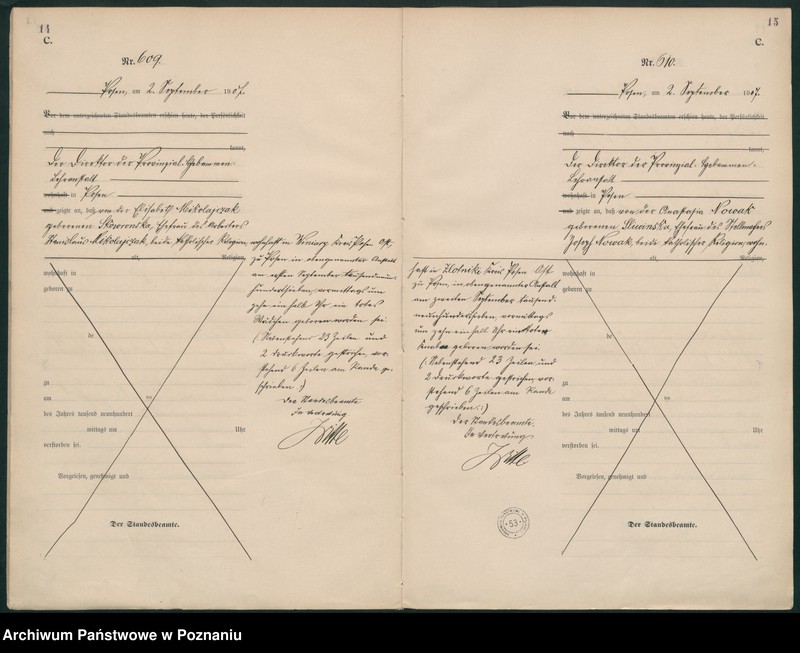 14
C.
Nr. 609.
Posen, am 2. September 1907.
Vor dem unterzeichneten Standesbeamten erschien heute, der Persönlichkeit
nach
kannt,
Der Direktor der Provinzial-Hebammen-
Lehranstalt
wohnhaft in Posen
und zeigte an, daß von der Elisabeth Mikolajczak
geborenen Skowronska, Ehefrau des Arbeiters
Stanislaus Mikolajczak, beide katholischer Religion,
alt, Religion,
wohnhaft in
geboren zu
de
zu
am des
des Jahres tausend neunhundert
mittags um Uhr
verstorben sei.
Vorgelesen, genehmigt und
Der Standesbeamte.
wohnhaft in Winiary Kreis Posen Ost,
zu Posen in obengenannter Anstalt
am ersten September tausendneun-
hundertsieben, vormittags um
zehn einhalb Uhr ein totes
Mädchen geboren worden sei.
(Nebenstehend 23 Zeilen und
2 Druckworte gestrichen, vor-
stehend 6 Zeilen am Rande ge-
schrieben.)
Der Standesbeamte
In Vertretung
15
C.
Nr. 610.
Posen, am 2. September 1907.
Vor dem unterzeichneten Standesbeamten erschien heute, der Persönlichkeit
nach
kannt,
Der Direktor der Provinzial-Hebammen-
Lehranstalt
wohnhaft in Posen
und zeigte an, daß von der Anastasia Nowak
geborenen Ehefrau des Stellmachers
Joseph Nowak, beide katholischer Religion, wohn-
alt, Religion,
wohnhaft in
geboren zu
de
zu
am des
des Jahres tausend neunhundert
mittags um Uhr
verstorben sei.
Vorgelesen, genehmigt und
Der Standesbeamte.
haft in Zlotnik Kreis Posen Ost
zu Posen, in obengenannter Anstalt
am zweiten September tausend-
neunhundertsieben, vormittags
um zehn einhalb Uhr ein toter
Knabe geboren worden sei.
(Nebenstehend 23 Zeilen und
2 Druckworte gestrichen, vor-
stehend 6 Zeilen am Rande
geschrieben.)
Der Standesbeamte.
In Vertretung
53
Archiwum Państwowe w Poznaniu